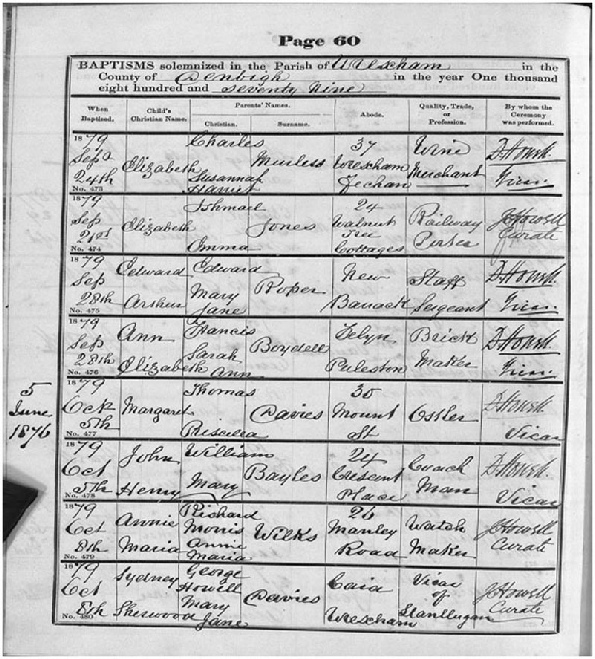 Page 60
BAPTISMS solemnized in the Parish of Wrexham in the
County of Denbigh in the year One thousand
eight hundred and seventy nine
When Baptized. Child's Christian Name. Parents' Names. Christian. Surname. Abode. Quality, Trade, or Profession. By whom the Ceremony was performed.
1879 Charles 37 Wine D Howell
Sep Elizabeth Murless Wrexham Merchant Vicar
24th Susannah Fechan
No. 473 Harriet
1879 Ishmael 24 Railway J Howell
Sep Elizabeth Jones Walnut Porter Curate
21st Emma Tree
No. 474 Cottages
1879 Edward Edward New Staff D Howell
Sep Roper
28th Arthur Mary Barrack Sergeant Vicar
No. 475 Jane
1879 Ann Francis Felyn Brick D Howell
Sep Sarah Boydell
28th Elizabeth Ann Puleston Maker Vicar
No. 476
1879 Thomas 30 D Howell
5 June 1876 Oct Margaret Davies Mount Ostler
5th Priscilla St Vicar
No. 477
1879 John William 24 Coach D Howell
Oct Bayles Crescent
5th Henry Mary Place Man Vicar
No. 478
1879 Annie Richard 26 Watch J Howell
Oct Morris Wilks Manley
8th Maria Annie Road Maker Curate
No. 479 Maria
1879 Sydney George Caia Vicar J Howell
Oct Howell Davies of
8th Sherwood Mary Wrexham Llanllugan Curate
No. 480 Jane